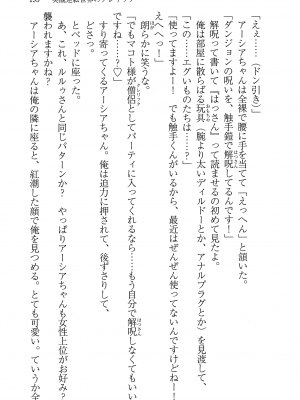 「えぇ……（ドン引き）」
アーシアちゃんは全裸で腰に手を当てて「えっへん」と頷いた。
「ダンジョンの呪いを、触手鎧で解呪してるんです！」
解呪って書いて『はっさん』って読ませるの初めて見たぞ。
俺は部屋に散らばる玩具（腕より太いディルドーとか、アナルプラグとか）を見渡して、
「この……エグいものたちは……？」
「使ってますよー！　でも触手くんがいるから、最近はぜんぜん使ってないんですけどねー！
えへへっ！」
朗らかに笑うな。
「でもマコト様が僧侶としてパーティに入ってくれるなら……もう自分で解呪しなくてもいい
ですね……？♡」
すり寄ってくるアーシアちゃん。俺は迫力に押されて、後ずさりして、
どさっ。
とベッドに座った。
あ、これ、ルルゥさんと同じパターンか？　やっぱりアーシアちゃんも女性上位がお好み？
襲われますか？
アーシアちゃんは俺の隣に座ると、紅潮した顔で俺を見つめる。とても可愛い。ていうか全